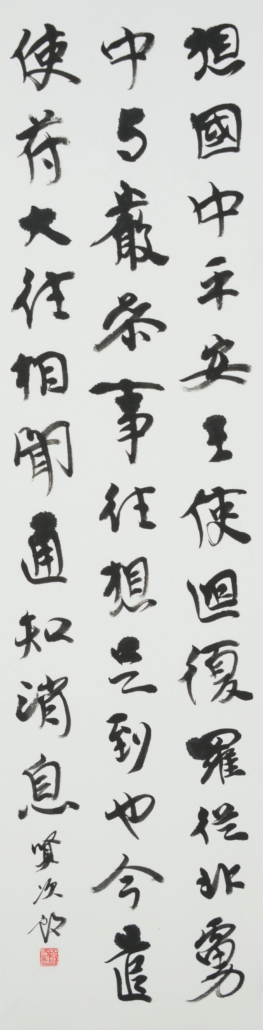 想國中平安王使迴復羅從北虜
中与嚴參事往想是到也今遣
使苻大往相聞通知消息 賢次郎